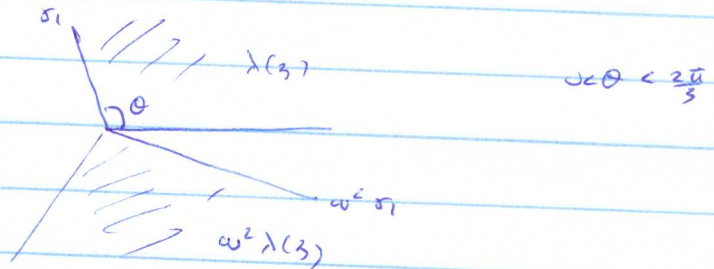 σ₁
λ(z)
θ
0 < θ < 2π/3
ω² σ₁
ω² λ(z)